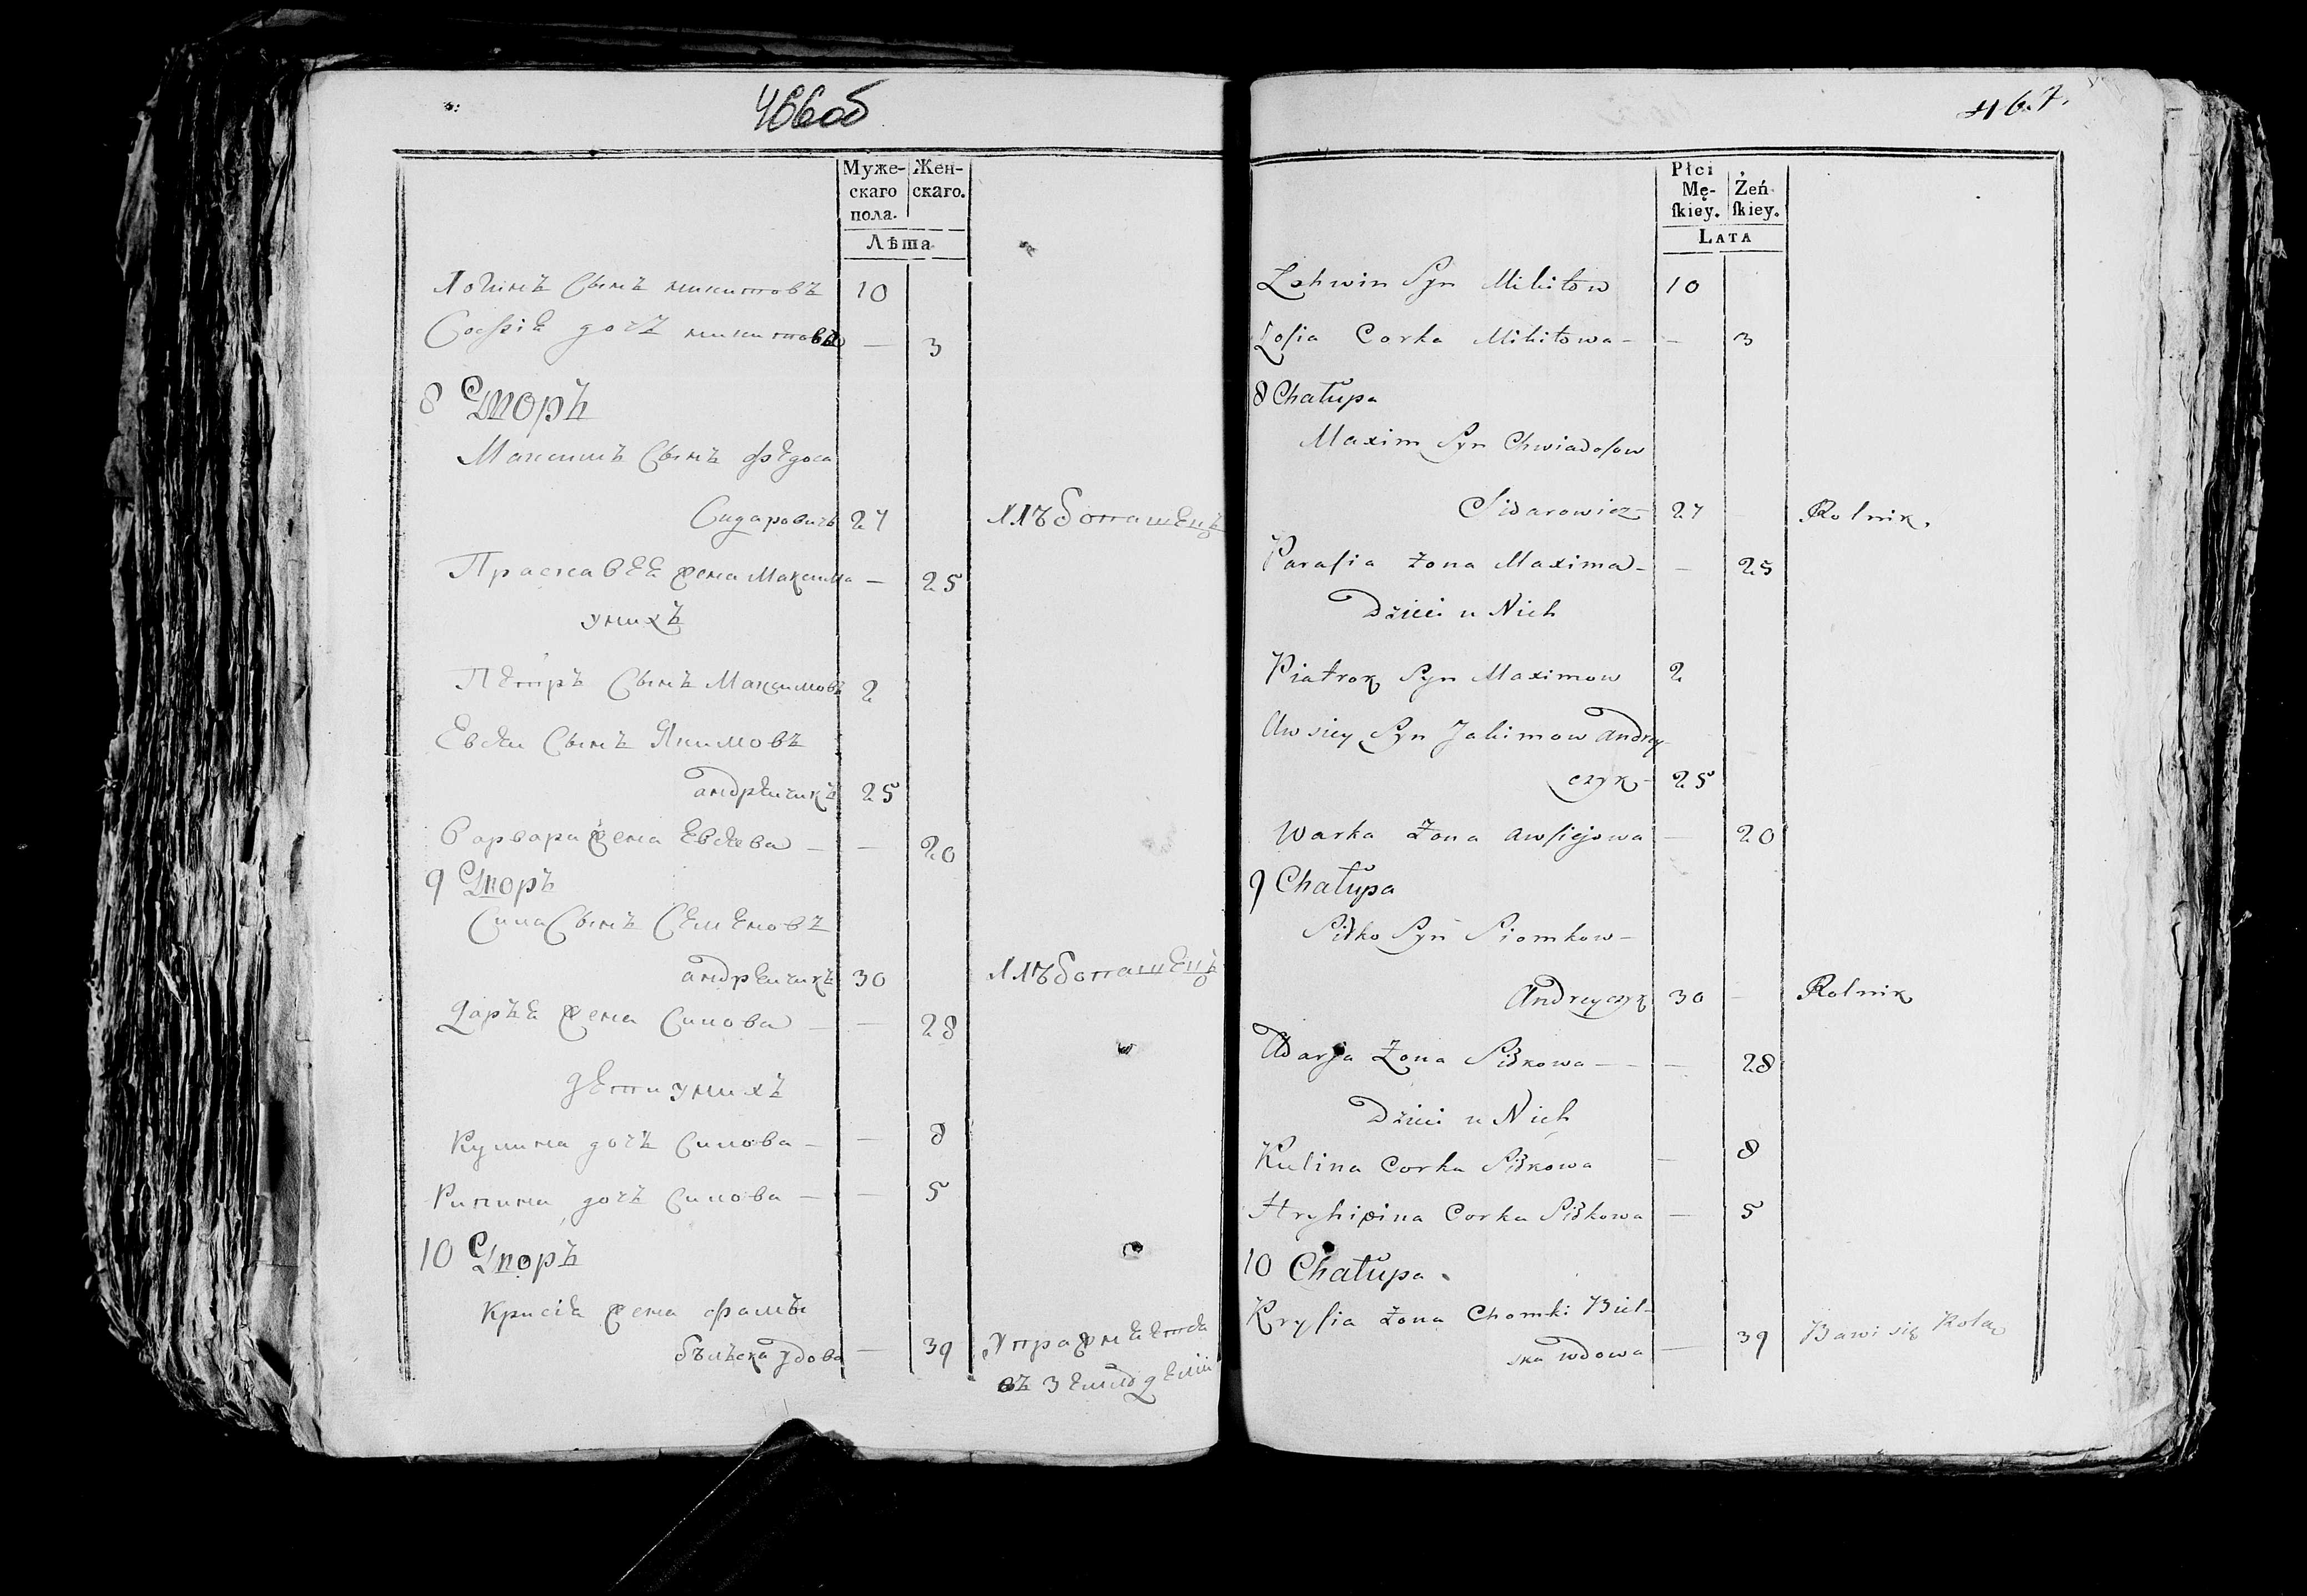 466об
Муже-
скаго
пола.
Жен-
скаго.
Лѣта
Логинъ Сынъ микитовъ 10
Софѣѣ дочъ микитова — 3
8 Дворъ
Максимъ Сынъ федоса
Сидаровичъ 27
Праскавея жена Максима — 25
у нихъ
Петръ Сынъ Максимовъ 2
Евсеи Сынъ Якимовъ
андреичикъ 25
Варвара жена Евсеева — — 20
9 Дворъ
Сила Сынъ Семеновъ
андреичикъ 30
Даръя жена Силова — — 28
дети у нихъ
Кулина дочъ Силова — — 8
дочъ Силова — — 5
10 Дворъ
жена фамы
бѣлъска удова — 39
въ
467.
Płci
Mę-
ſkiey.
Żeń
ſkiey.
Lata
Lohwin Syn Mikitow 10
Zoſia Corka Mikitowa — — 3
8 Chałupa
Maxim Syn Chwiadoſow
Sidarowicz — 27 — Rolnik.
Paraſia Żona Maxima — — 25
Dzieci u Nich
Piatrok Syn Maximow 2
Awsiey Syn Jakimow Andrey-
czyk — 25
Warka Żona Awſiejowa — 20
9 Chałupa
Siłko Syn Siomkow —
Andreyczyk 30 — Rolnik
Adarja Żona Siłkowa — — — 28
Dzieci u Nich
Kulina Corka Siłkowa — 8
Hryhipina Corka Siłkowa — 5
10 Chałupa.
Kryſia Żona Chomki Biel-
ska wdowa — 39 Bawi się Rolą